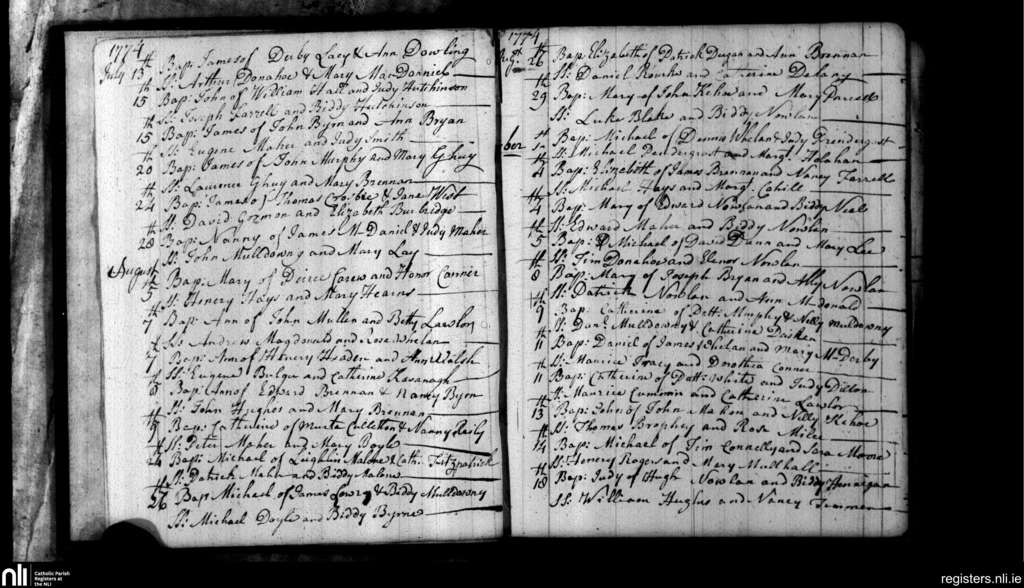 1774
July 13th Bap: James of Derby Lacy & Ann Dowling
Ss: Arthur Donahoe & Mary MacDaniel
15th Bap: John of William Hall and Judy Hutchinson
Ss: Joseph Farrell and Biddy Hutchinson
15th Bap: James of John Byrn and Ann Bryan
Ss: Eugene Maher and Judy Smith
20th Bap: James of John Murphy and Mary
Ss: Laurence and Mary Brennan
24th Bap: James of Thomas & Jane West
Ss: David Gormon and Elizabeth Burbridge
28th Bap: Nanny of James McDaniel & Judy Maher
Ss: John Mulldowny and Mary Lay
August
5th Bap: Mary of Peirce Carew and Honor Conner
Ss: Henery Hays and Mary Hearns
7th Bap: Ann of John Mullen and Betty Lawlor
Ss: Andrew Magdonald and Rose Whelan
7th Bap: Ann of Henery Headen and Ann Walsh
Ss: Eugene Bulger and Catherine Kavanagh
8th Bap: Ann of Edward Brennan & Nancy Byrn
Ss: John Hughes and Mary Brennan
Bap: Catherine of Murta Culleton & Nanny
Ss: Peter Maher and Mary Boyle
24th Bap: Michael of Laughlin Malone & Cath: Fitzpatrick
Ss: Patrick Maher and Biddy Malone
26th Bap: Michael of James Lowry & Biddy Mulldowny
Ss: Michael Doyle and Biddy Byrne
1774
Augst 26th Bap: Elizabeth of Patrick Dugan and Ann Brennan
Ss: Daniel Rourke and Catherine Delany
29th Bap: Mary of John Kehoe and Mary Farrell
Ss: Luke Blake and Biddy Nowlan
ber 1st Bap: Michael of Dennis Whelan & Judy Prendergast
Ss: Michael Pendergast and Margt Holahan
4th Bap: Elizabeth of James Brennan and Nancy Farrell
Ss: Michael Hays and Marg: Cahill
4th Bap: Mary of Edward Nowlan and Biddy Neal
Ss: Edward Maher and Biddy Nowlan
5th Bap: Michael of David Dunn and Mary Lee
Ss: Tim Donahoe and Elenor Nowlan
8th Bap: Mary of Joseph Bryan and Ally Nowlan
Ss: Patrick Nowlan and Ann McDonald
9th Bap: Catherine of Patt: Murphy & Nelly Muldowny
Ss: Danl Mulldowny & Catherine
11th Bap: Daniel of James Whelan and Mary McDerby
Ss: Maurice Tracy and Dorothea Conner
11th Bap: Catherine of Patt: White and Judy Dillon
Ss: Maurice Cummin and Catherine Lawlor
13th Bap: John of John Mahon and Nelly Kehoe
Ss: Thomas Brophy and Rose Miles
14th Bap: Michael of Tim Connelly and Sara Moore
Ss: Henery Rogers and Mary Mulhall
18th Bap: Judy of Hugh Nowlan and Biddy Henargan
Ss: William Hughes and Nancy Timmon
nli
Catholic Parish
Registers at
the NLI
registers.nli.ie